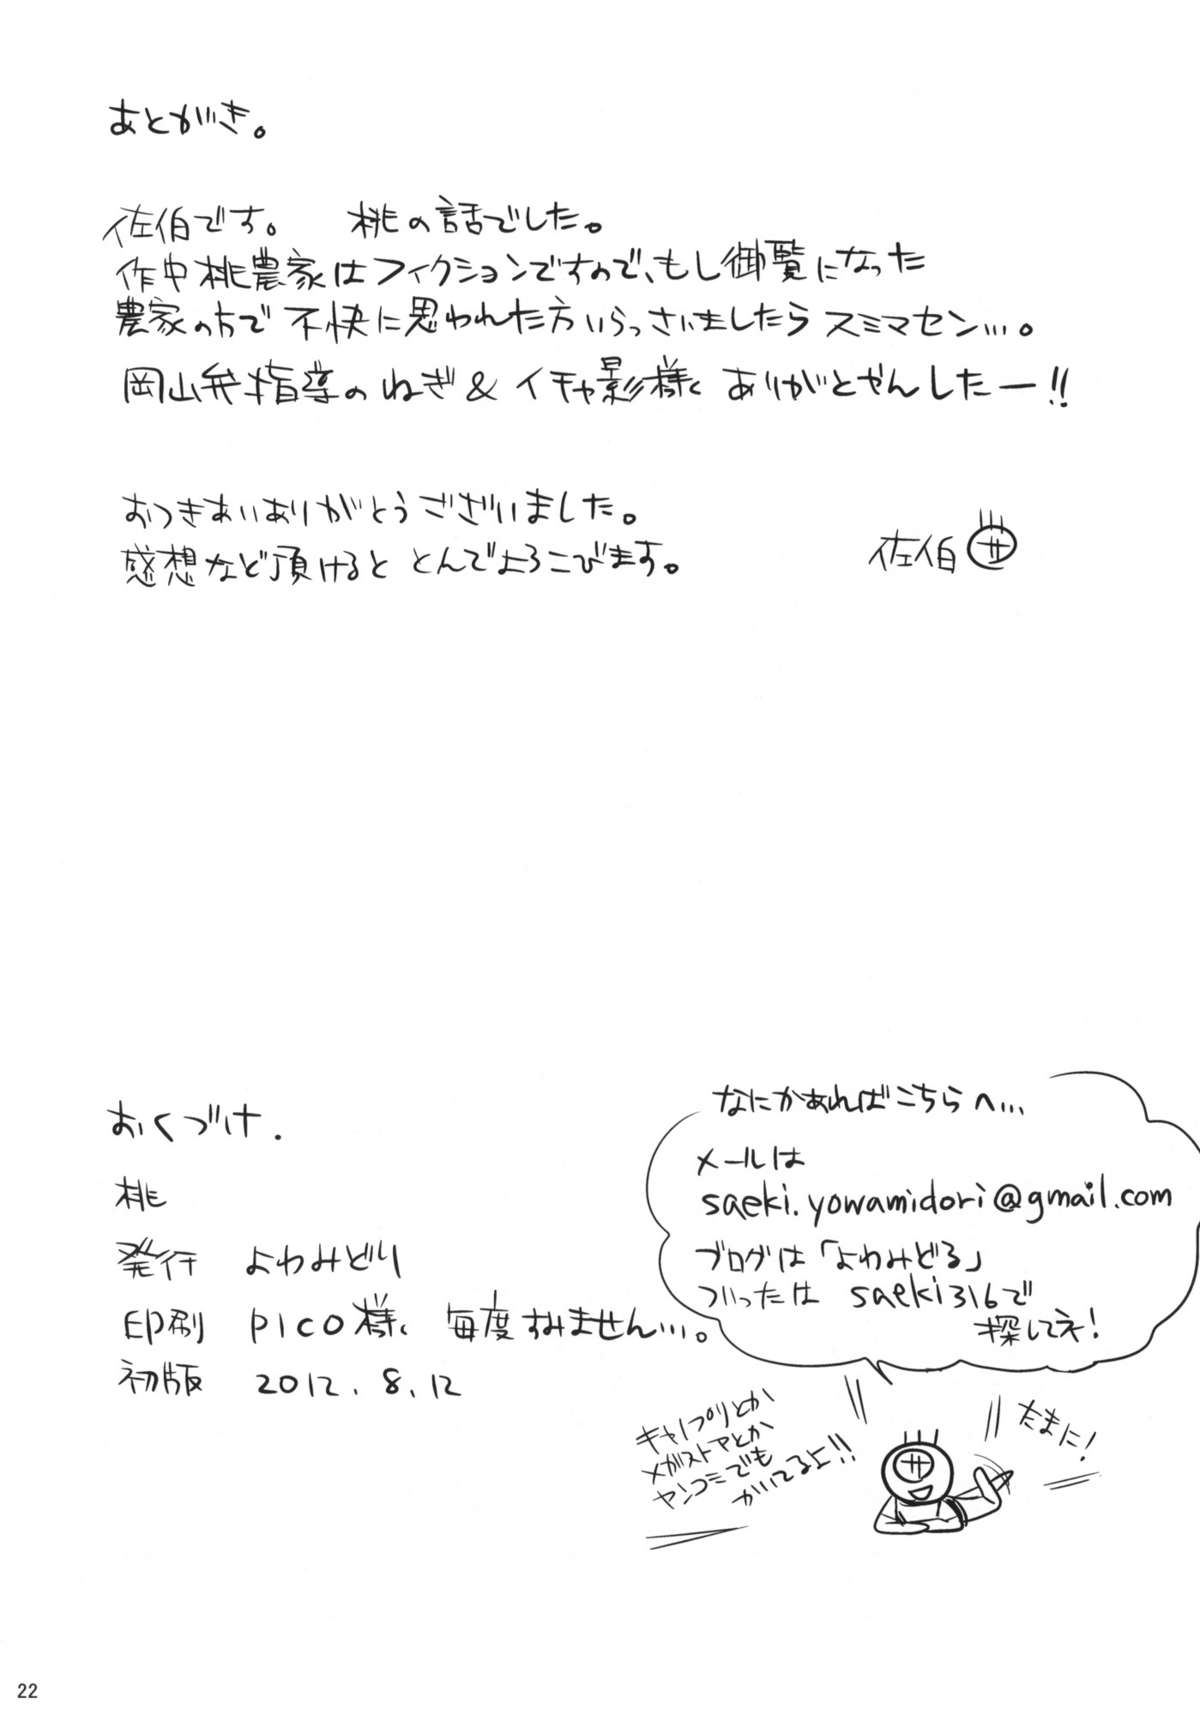 あとがき。
佐伯です。 桃の話でした。
作中桃農家はフィクションですので、もし御覧になった
農家の方で不快に思われた方いらっさいましたらスミマセン…。
岡山弁指導のねぎ&イチャ影様〱 ありがとやんしたー!!
おつきあいありがとうございました。
感想など頂けると とんでよろこびます。
佐伯 サ
おくづけ.
桃
発行 よわみどり
印刷 pico様〱 毎度すみません…。
初版 2012.8.12
なにかあればこちらへ…
メールは
saeki.yowamidori@gmail.com
ブログは「よわみどる」
ついったは saeki316で
探してネ!
キャノプリとか
メガストアとか
ヤンコミでも
かいてるよ!!
たまに!
サ
22